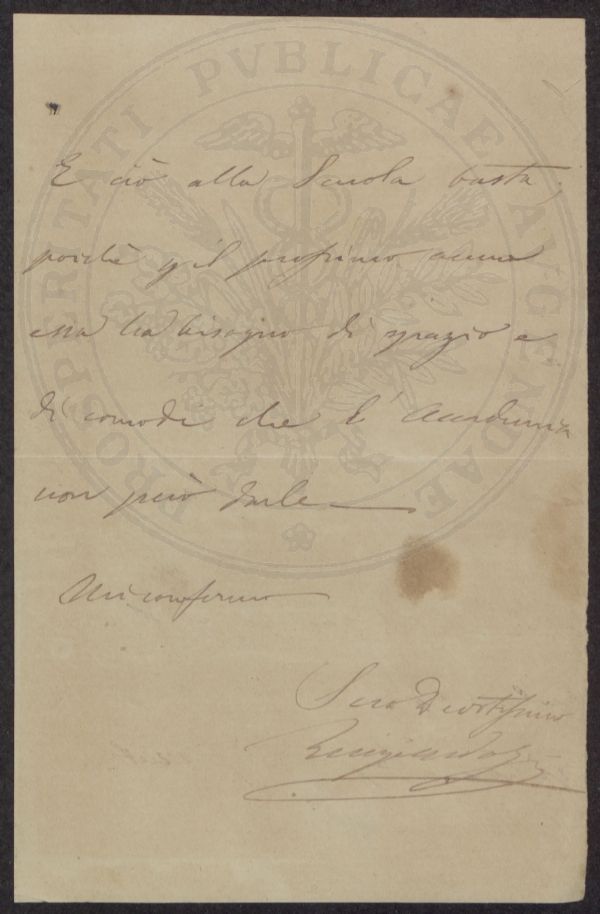 PROSPERITATI PVBLICAE AVGENDAE
E ciò alla Scuola basta,
poichè pel prossimo anno
essa ha bisogno di spazio e
di comodi che l'Accademia
non può darle
Mi confermo
Suo Devotissimo